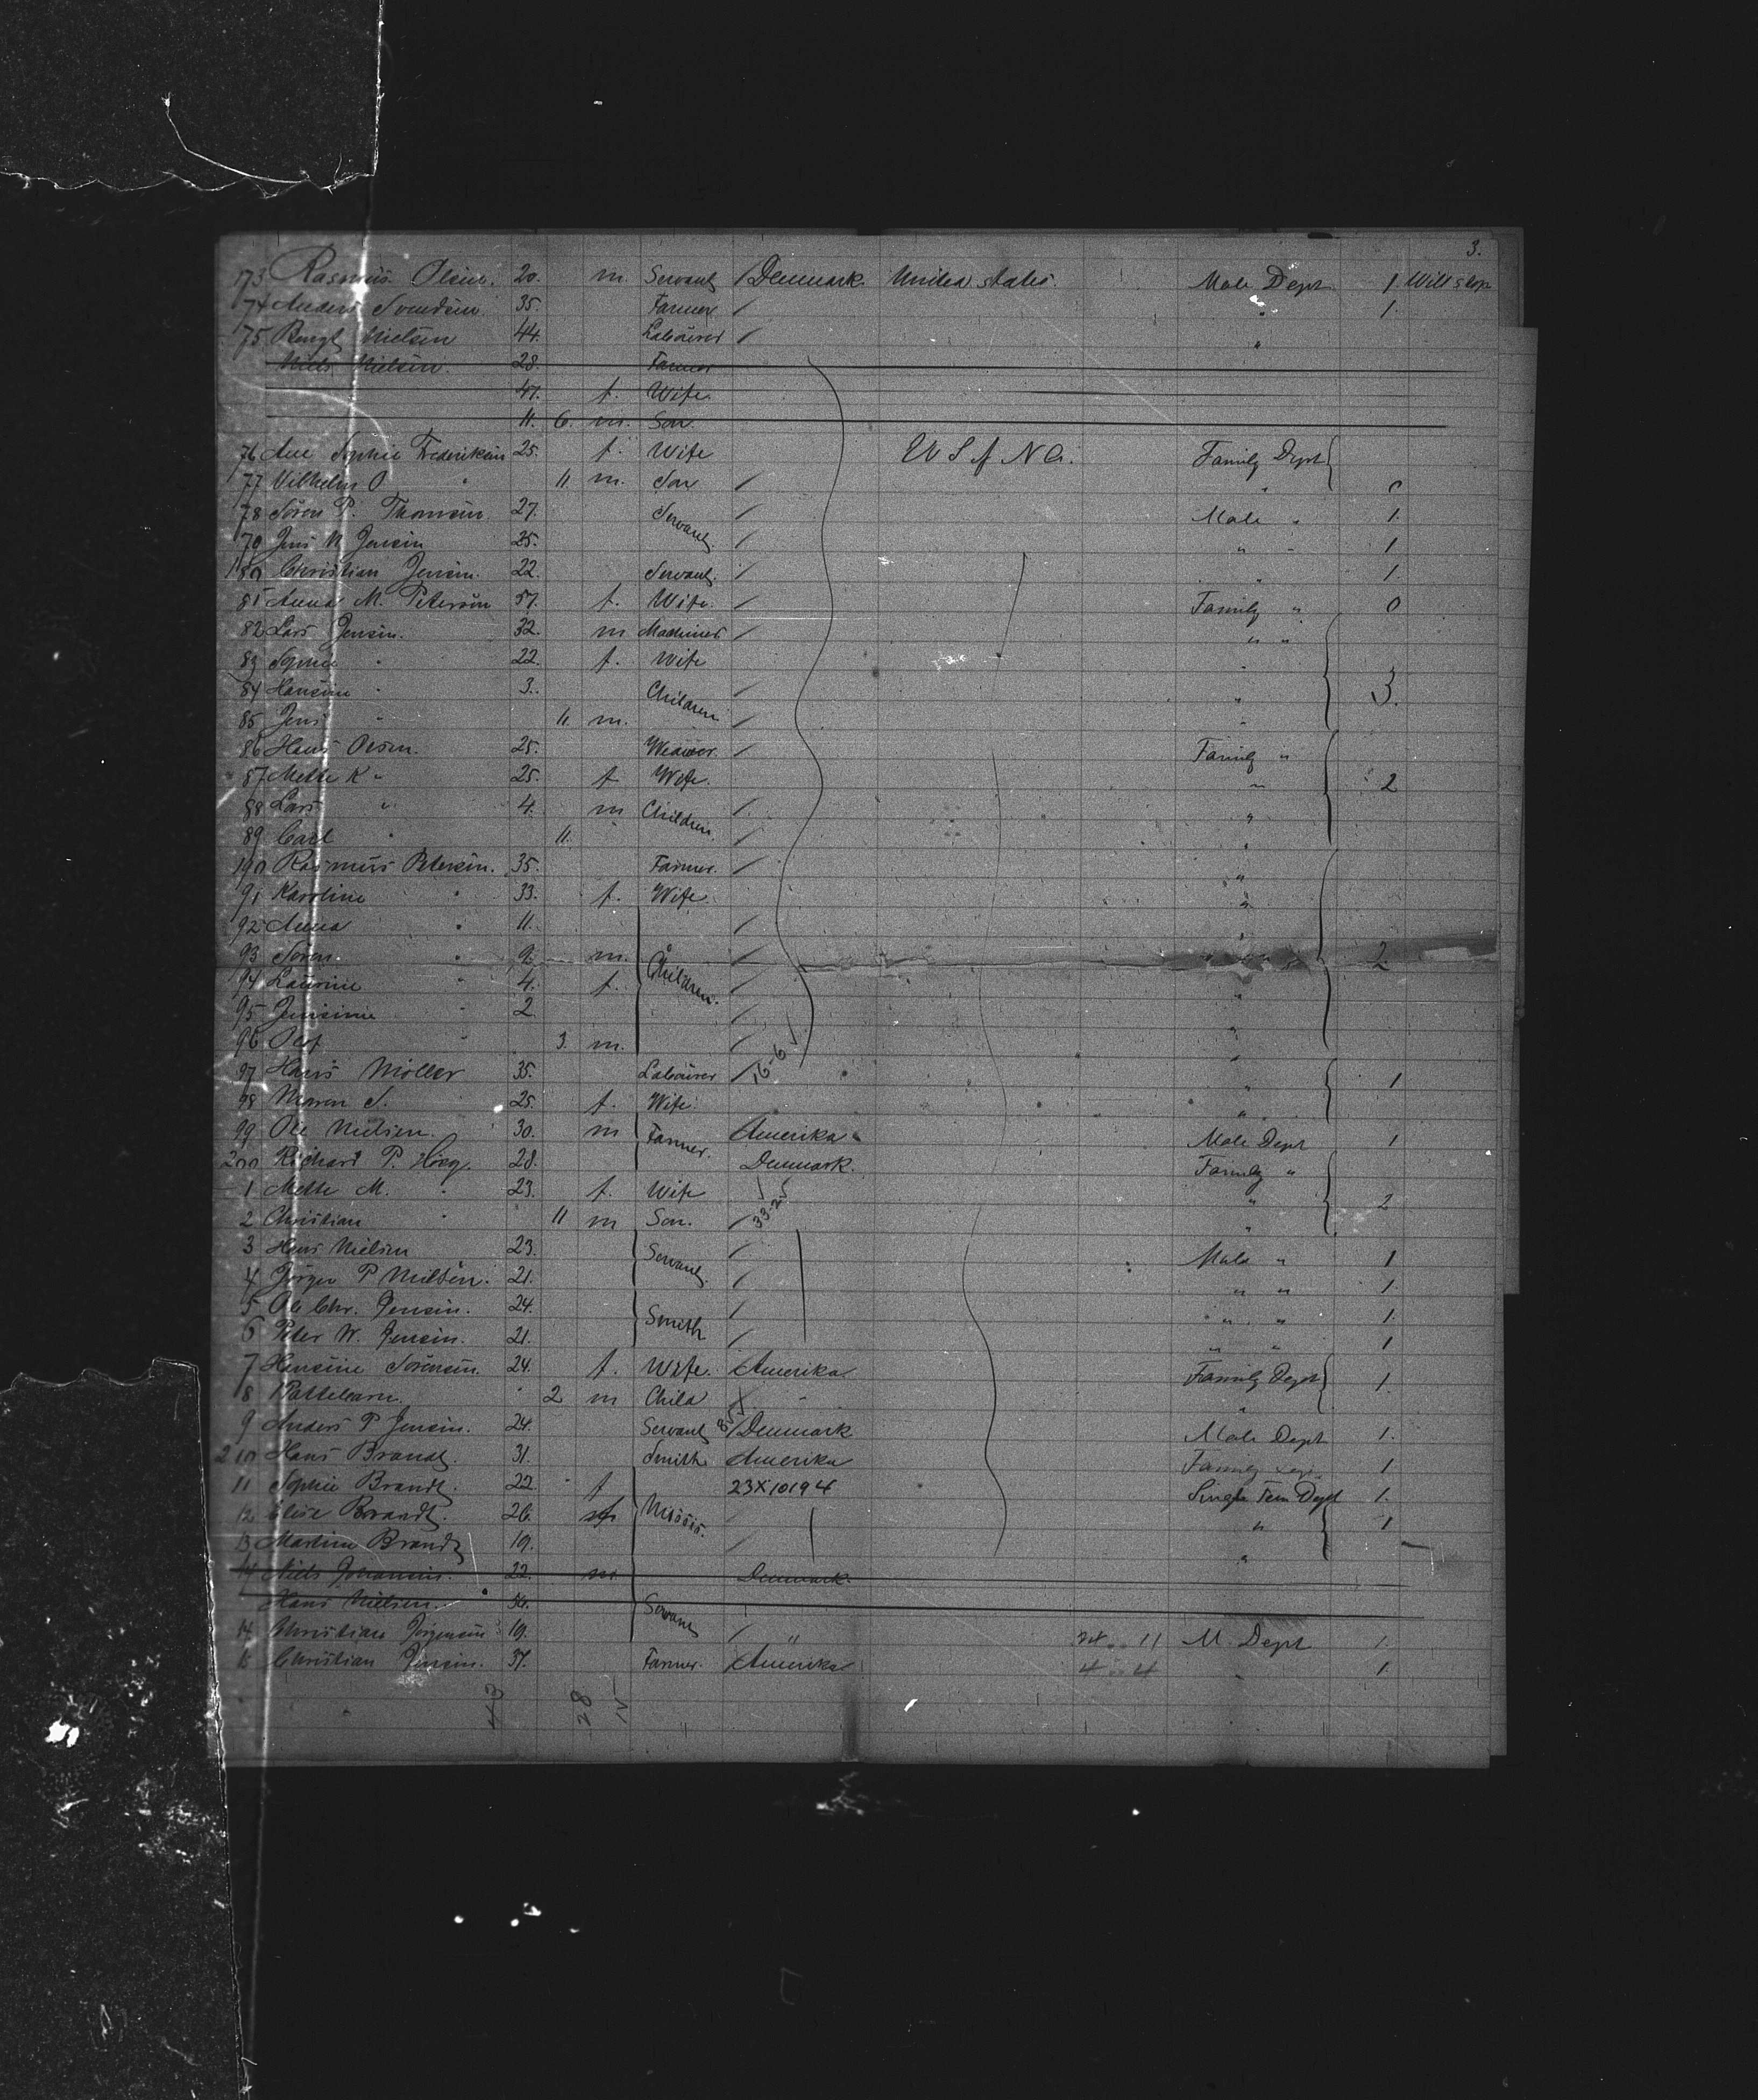 3.
173 Rasmus Olsen. 20. m. Servant / Denmark. United States. Male Dept 1 Will stop
74 Anders Svendsen 35. Farmer / " 1.
75 Bengt Nielsen 44. Labourer / "
Niels Nielsen. 28. Farmer
f. Wife.
11. 6. m. Son.
76 Ane Sophie Frederiksen 25. f. Wife U S of N A. Family Dept
77 Vilhelm O " 11. m. Son / "
78 Sören P. Thomsen 27. Servant. / Male " 1.
79 Jens N Jensen 25. / " " 1
180 Christian Jensen. 22. Servant. / " 1.
81 Anna M. Petersen 57. f. Wife. / Family " 0
82 Lars Jensen. 32. m / " "
83 Sophie " 22. f. Wife "
84 Hansine " 3. Children / " 3.
85 Jens " 11. m. / "
86 Hans Olsen. 25. Weaver. / Family "
87 Mette K " 25. f Wife. " 2
88 Lars " 4. m Children / "
89 Carl " 11. / "
190 Rasmus Petersen. 35. Farmer. / "
91 Karoline " 33. f. Wife. "
92 Anna " 11. / "
93 Sören. " 9. m. Children. / 2
94 Laurine " 4. f. / "
95 Jensine " 2 / "
96 Olof " 3. m. / "
97 Hans Möller 35. Labourer / 16-6 " 1
98 Maren S. 25. f. Wife. "
99 Ole Nielsen. 30. m Farmer. Amerika Male Dept 1
200 Richard P. Höeg. 28. Denmark. Family "
1 Mette M. " 23. f. Wife " 2
2 Christian " 11 m Son. / "
3 Hans Nielsen 23. Servant. / Male " 1
4 Jörgen P Nielsen. 21. / " " 1.
5 Ole Chr. Jensen. 24. Smith / " " 1.
6 Peter W. Jensen. 21. / " " 1
7 Hansine Sörensen. 24. f. Wife. Amerika Family Dept 1.
8 2 m Child "
9 Anders P Jensen. 24. Servant / Denmark Male Dept 1.
210 Hans Brandt. 31. Smith Amerika Family 1
11 Sophie Brandt. 22. f 23X10194 Single Fem Dept 1.
12 Elise Brandt. 26. Missis. / " 1
13 Martine Brandt 19. / "
14 Niels Johansen. 22. m Denmark.
Hans Nielsen. Servant
14 Christian Jörgensen 19. / " 11 M. Dept 1.
15 Christian Jensen. 37. Farmer. Amerika 4 " 4 " 1.
43 28 15